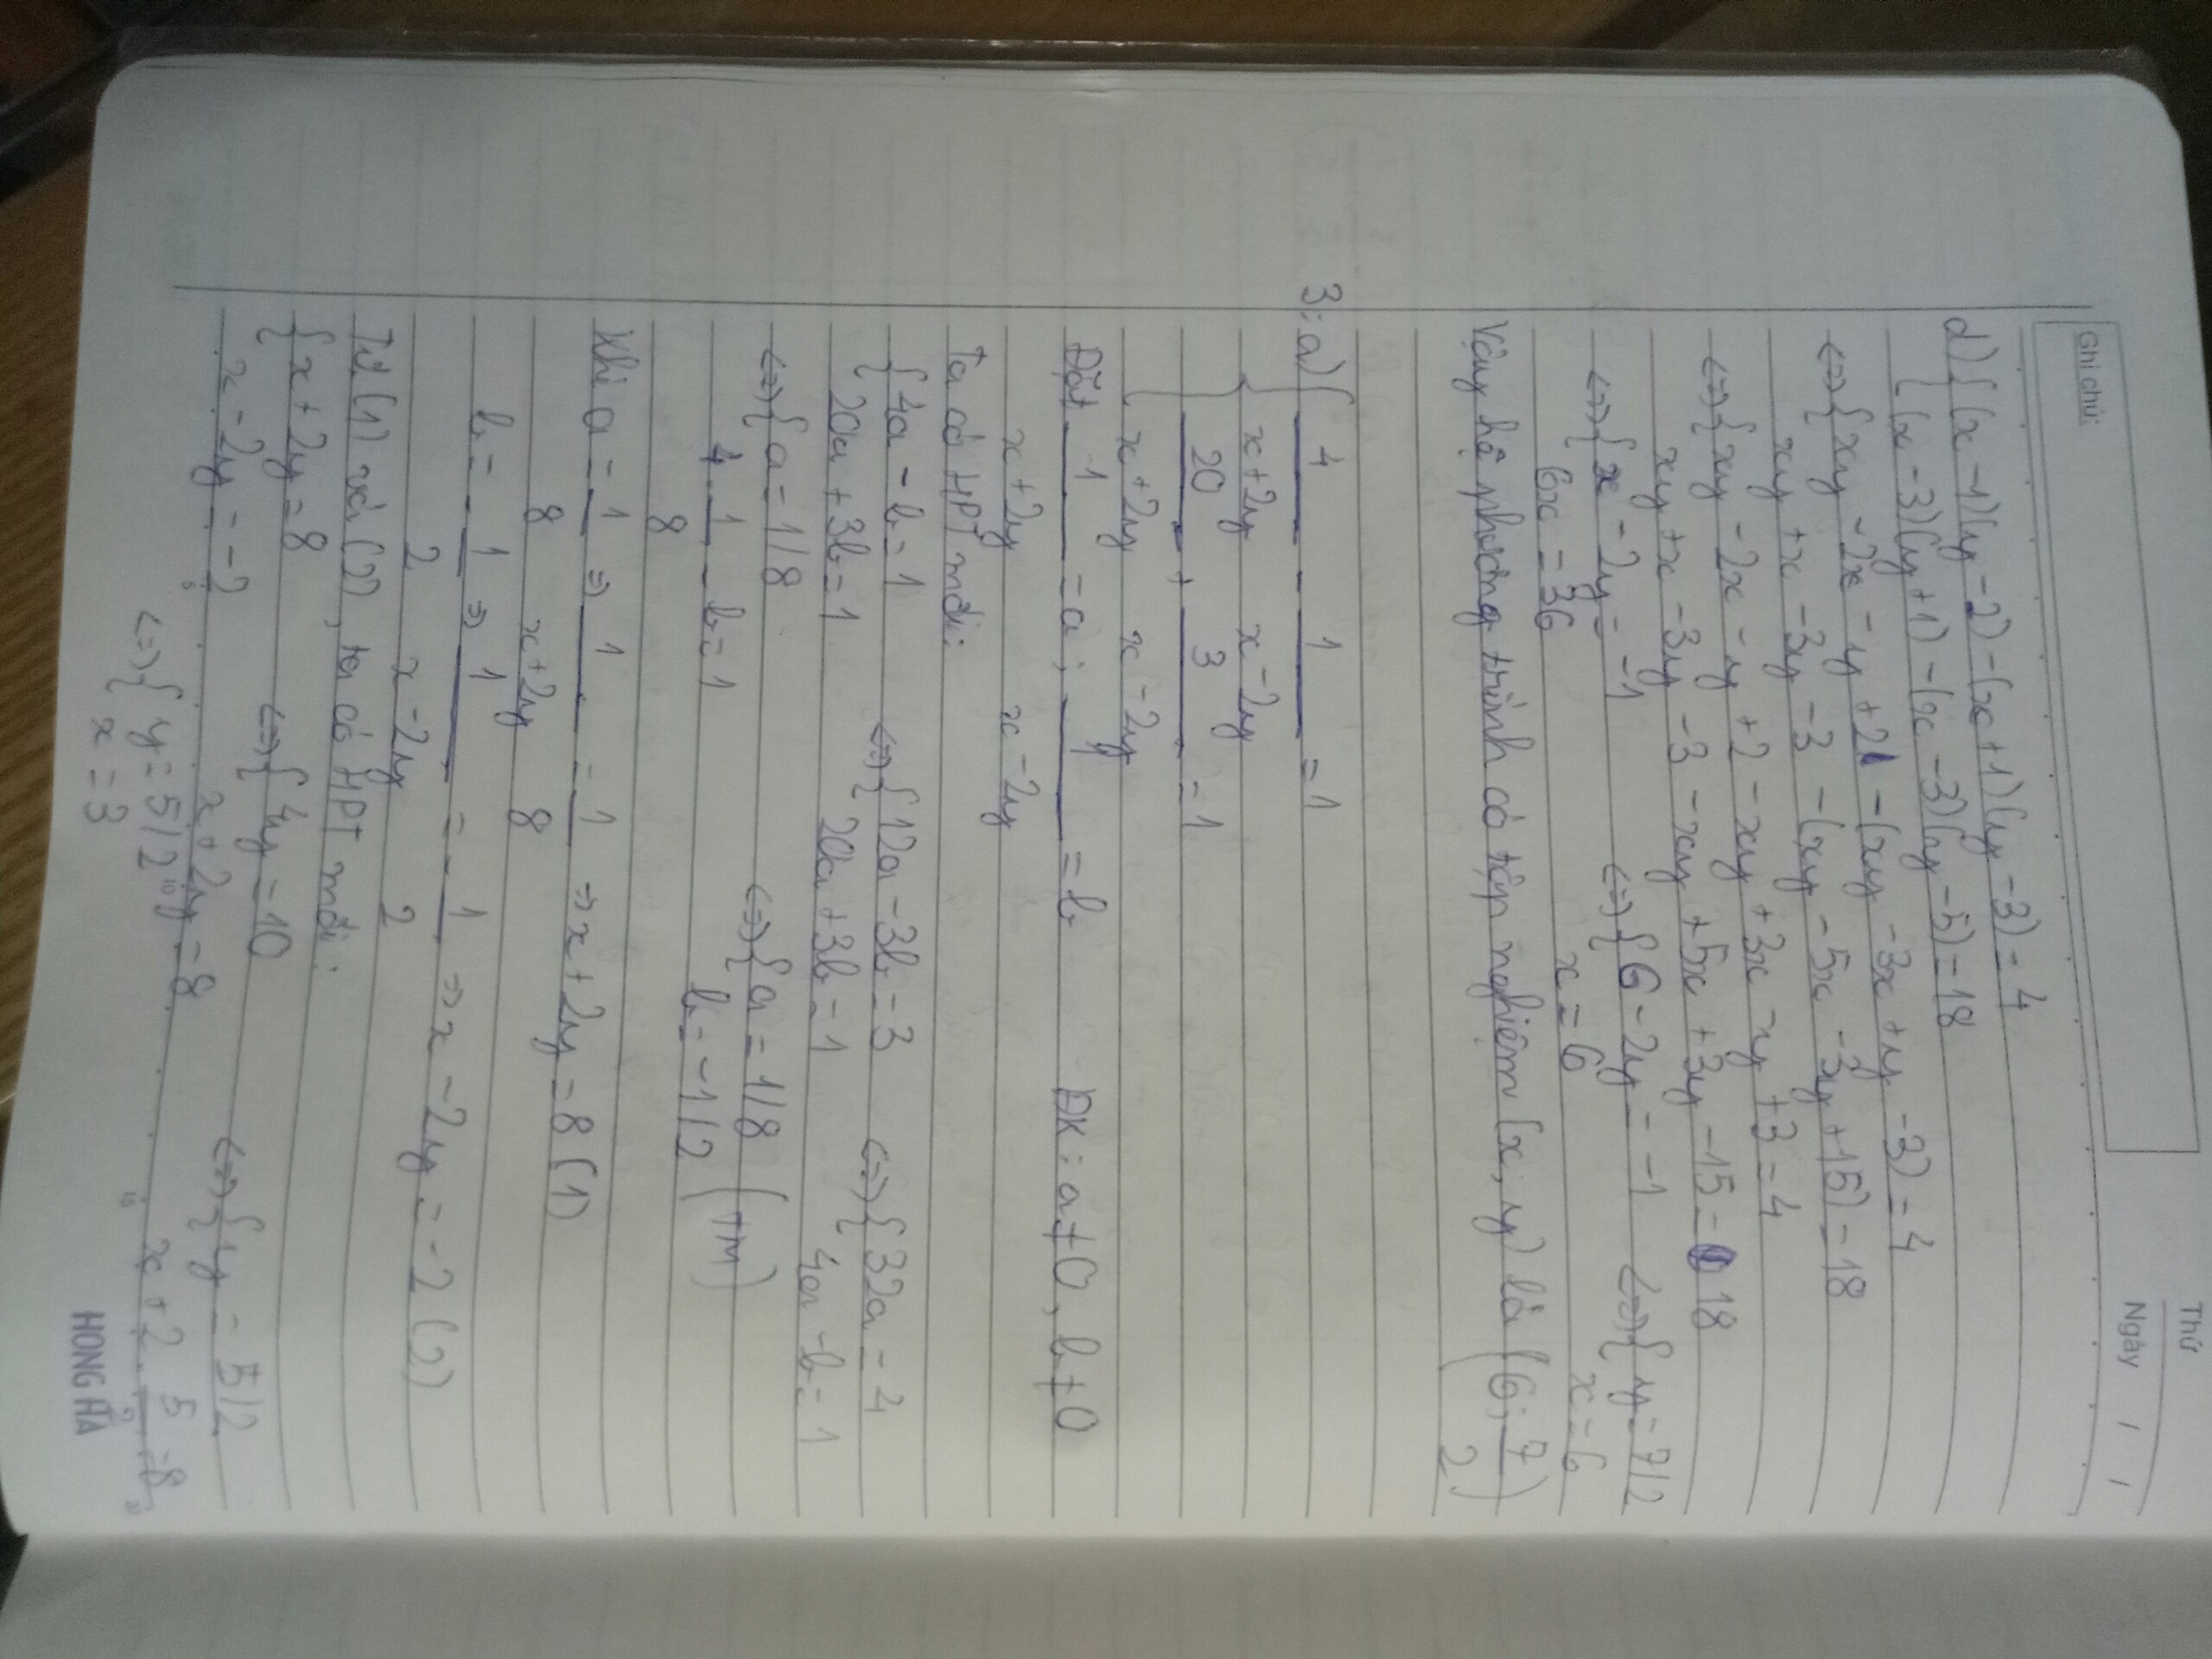 Thứ
Ngày / /
Ghi chú:
d) { (x-1)(y-2)-(x+1)(y-3)=4
(x-3)(y+1)-(x-3)(y-5)=18
<=> { xy-2x-y+2-(xy-3x+y-3)=4
xy+x-3y-3-(xy-5x-3y+15)=18
<=> { xy-2x-y+2-xy+3x-y+3=4
xy+x-3y-3-xy+5x+3y-15=18
<=> { x-2y=-1 <=> { 6-2y=-1 <=> { y=7/2
6x=36 x=6 x=6
Vậy hệ phương trình có tập nghiệm (x, y) là (6; 7/2)
3: a) { 4/(x+2y) - 1/(x-2y) = 1
20/(x+2y) + 3/(x-2y) = 1
Đặt 1/(x+2y) = a; 1/(x-2y) = b ĐK: a≠0, b≠0
Ta có HPT mới:
{ 4a-b=1 <=> { 12a-3b=3 <=> { 32a=4
20a+3b=1 20a+3b=1 4a-b=1
<=> { a=1/8 <=> { a=1/8 (TM)
4.1/8-b=1 b=-1/2
Khi a=1/8 => 1/(x+2y) = 1/8 => x+2y=8 (1)
b=-1/2 => 1/(x-2y) = -1/2 => x-2y=-2 (2)
Từ (1) và (2), ta có HPT mới:
{ x+2y=8 <=> { 4y=10 <=> { y=5/2
x-2y=-2 x+2y=8 x+2.5/2=8
<=> { y=5/2
x=3
HONG HA